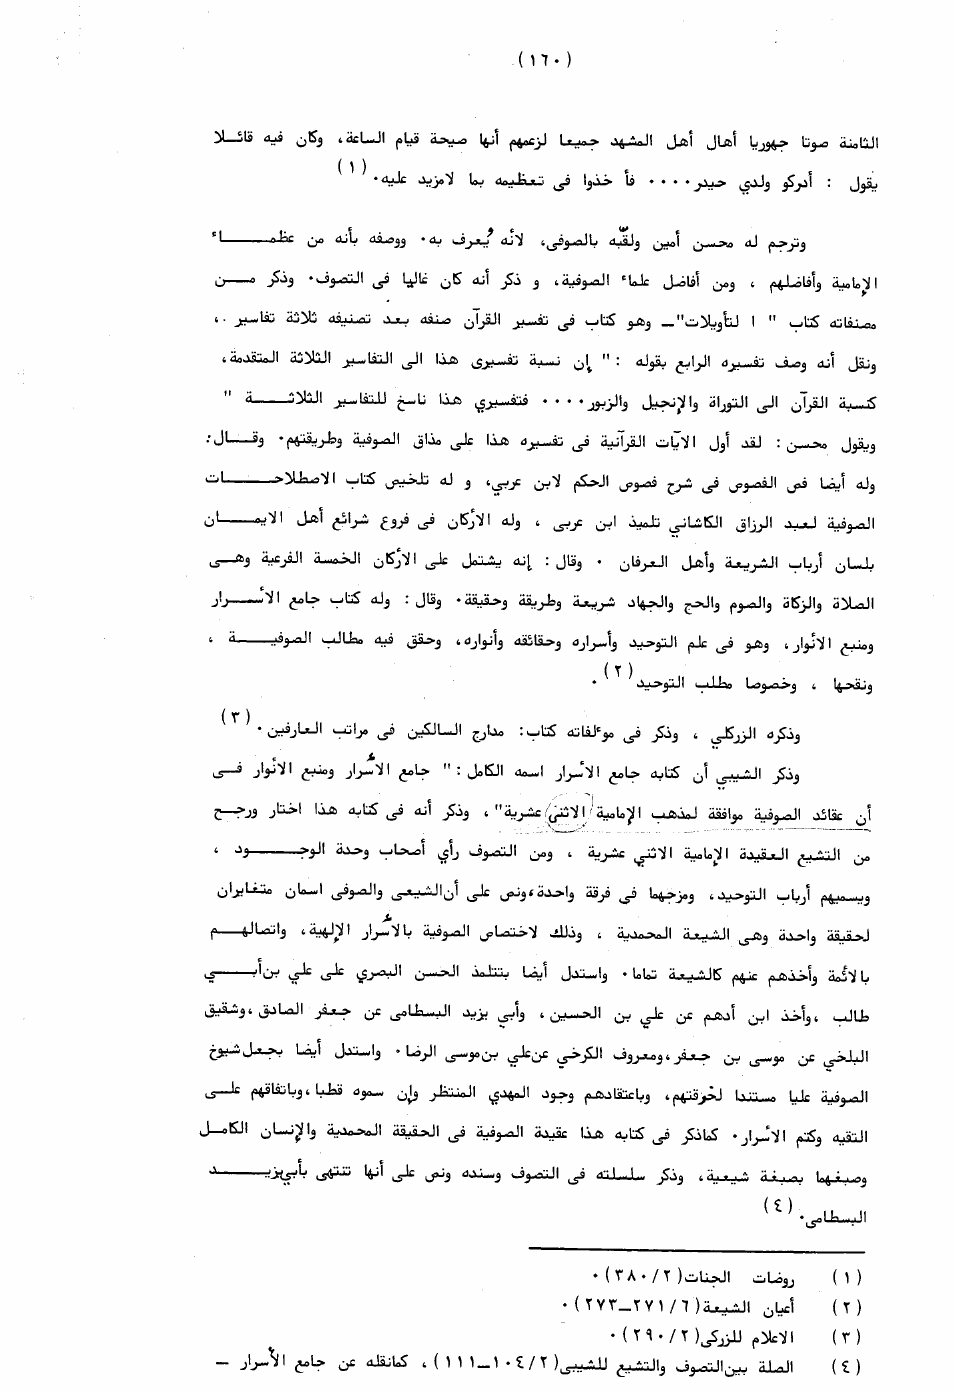 (١٦٠)
الثامنة صوتا جهوريا أهال أهل المشهد جميعا لزعمهم أنها صيحة قيام الساعة، وكان فيه قائـــلا
يقول : أدركو ولدي حيدر٠٠٠٠ فأ خذوا فى تعظيمه بما لامزيد عليه٠(١)
وترجم له محسن أمين ولقّبه بالصوفى، لأنه يُعرف به٠ ووصفه بأنه من عظمـــــاء
الإمامية وأفاضلهم ، ومن أفاضل علماء الصوفية، و ذكر أنه كان غاليا فى التصوف٠ وذكر مـــن
مصنفاته كتاب " ا لتأويلات"ــ وهو كتاب فى تفسير القرآن صنفه بعد تصنيفه ثلاثة تفاسير ٠،
ونقل أنه وصف تفسيره الرابع بقوله :" إن نسبة تفسيرى هذا الى التفاسير الثلاثة المتقدمة،
كنسبة القرآن الى التوراة والإنجيل والزبور٠٠٠٠ فتفسيري هذا ناسخ للتفاسير الثلاثــــة "
ويقول محسن: لقد أول الآيات القرآنية فى تفسيره هذا على مذاق الصوفية وطريقتهم٠ وقـــال:
وله أيضا فص الفصوص فى شرح فصوص الحكم لابن عربي، و له تلخيص كتاب الاصطلاحـــــات
الصوفية لعبد الرزاق الكاشاني تلميذ ابن عربى ، وله الأركان فى فروع شرائع أهل الايمـــان
بلسان أرباب الشريعة وأهل العرفان ٠ وقال: إنه يشتمل على الأركان الخمسة الفرعية وهــى
الصلاة والزكاة والصوم والحج والجهاد شريعة وطريقة وحقيقة٠ وقال: وله كتاب جامع الأســـرار
ومنبع الأنوار، وهو فى علم التوحيد وأسراره وحقائقه وأنواره، وحقق فيه مطالب الصوفيـــة ،
ونقحها ، وخصوصا مطلب التوحيد(٢)٠
وذكره الزركلي ، وذكر فى موءلفاته كتاب: مدارج السالكين فى مراتب العارفين٠(٣)
وذكر الشيبي أن كتابه جامع الأسرار اسمه الكامل:" جامع الأسرار ومنبع الأنوار فــى
أن عقائد الصوفية موافقة لمذهب الإمامية الاثني عشرية"، وذكر أنه فى كتابه هذا اختار ورجــح
من التشيع العقيدة الإمامية الاثني عشرية ، ومن التصوف رأي أصحاب وحدة الوجـــــود ،
ويسميهم أرباب التوحيد، ومزجهما فى فرقة واحدة،ونص على أن الشيعى والصوفى اسمان متغايران
لحقيقة واحدة وهى الشيعة المحمدية ، وذلك لاختصاص الصوفية بالأسرار الإلهية، واتصالهـــم
بالأئمة وأخذهم عنهم كالشيعة تماما٠ واستدل أيضا بتتلمذ الحسن البصري على علي بن أبـــــي
طالب ،وأخذ ابن أدهم عن علي بن الحسين، وأبي يزيد البسطامى عن جعفر الصادق ،وشقيق
البلخي عن موسى بن جعفر،ومعروف الكرخي عن علي بن موسى الرضا٠ واستدل أيضا بجعل شيوخ
الصوفية عليا مستندا لخرقتهم، وباعتقادهم وجود المهدي المنتظر وإن سموه قطبا،وباتفاقهم علــى
التقيه وكتم الأسرار٠ كماذكر فى كتابه هذا عقيدة الصوفية فى الحقيقة المحمدية والإنسان الكامــل
وصبغهما بصبغة شيعية، وذكر سلسلته فى التصوف وسنده ونص على أنها تنتهى بأبي يزيـــــد
البسطامى٠(٤)
(١) روضات الجنات(٣٨٠/٢)٠
(٢) أعيان الشيعة(٢٧١/٦ــ٢٧٣)٠
(٣) الاعلام للزركى(٢٩٠/٢)٠
(٤) الصلة بين التصوف والتشيع للشيبى(١٠٤/٢ــ١١١)، كمانقله عن جامع الأسرار ــ